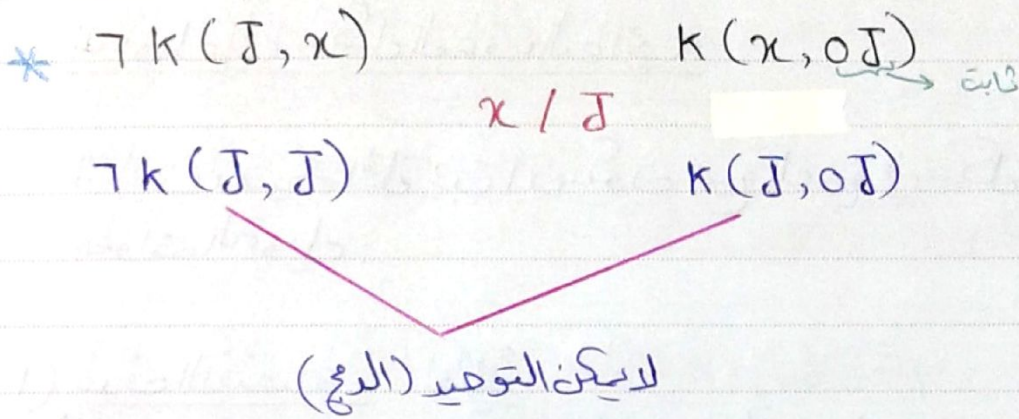 * ¬K(J,x) K(x,OJ) → ثابت
x/J
¬K(J,J) K(J,OJ)
لا يمكن التوحيد (الدمج)